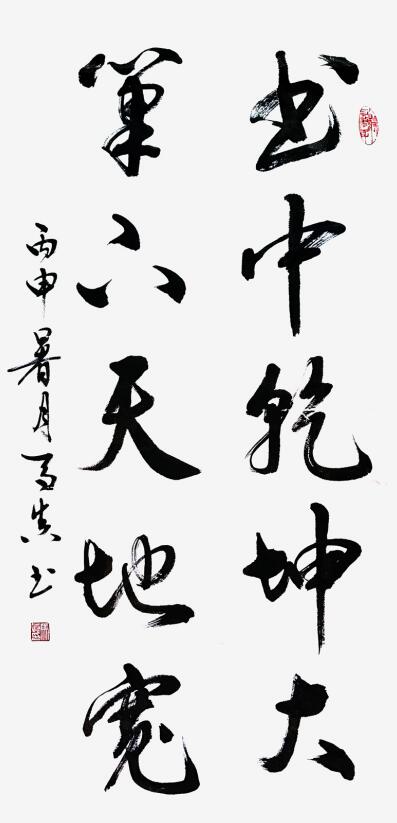 书中乾坤大
筆下天地宽
丙申暑月马真书